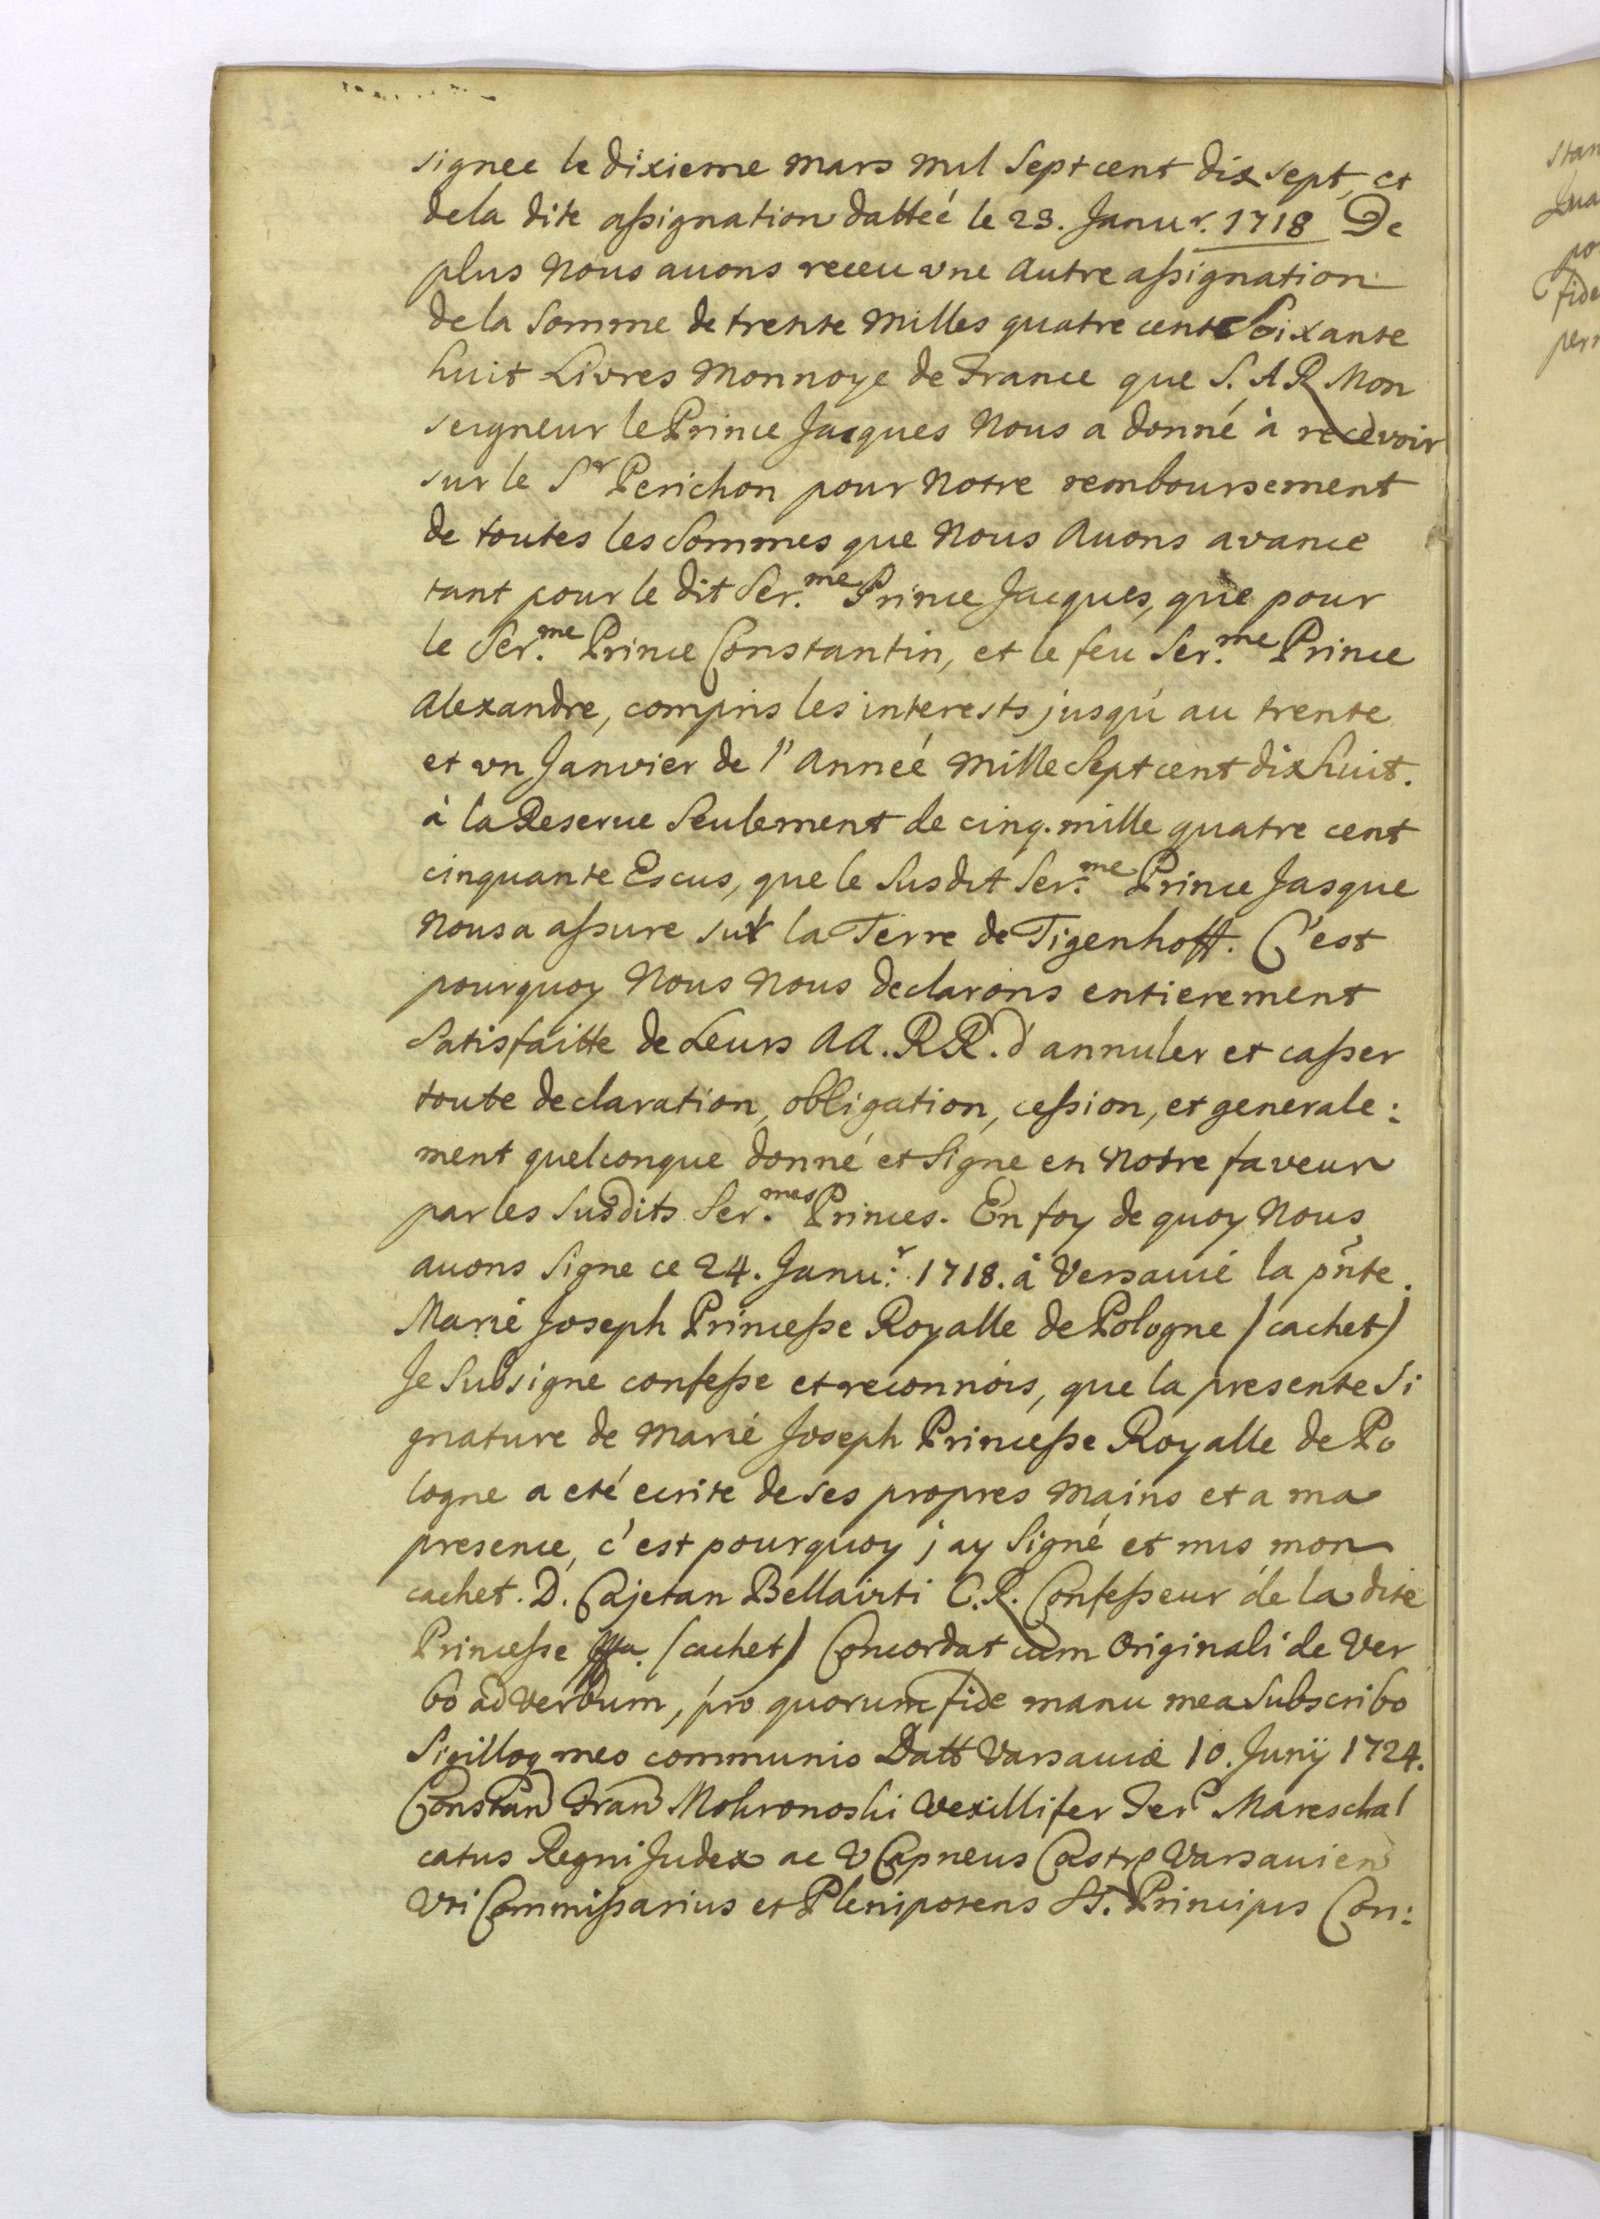 signee le dixieme mars mil Sept cent dix sept, et
de la dite assignation datteé le 23. Janur. 1718 De
plus nous auons receu vne autre assignation
de la Somme de trente milles quatre cent Soixante
huit Livres monnoye de France que S. A R Mon
seigneur le Prince Jacques nous a donné à recevoir
sur le Sr Perichon pour notre remboursement
de toutes les Sommes que nous auons avance
tant pour le dit Ser.me Prince Jacques, que pour
le Ser.me Prince Constantin, et le feu Ser.me Prince
Alexandre, compris les interests jusqu'au trente
et vn Janvier de l'Anneé mille Sept cent dix huit.
à la Reserue Seulement de cinq. mille quatre cent
cinquante Escus, que le Susdit Ser.me Prince Jasque
nous a assure sur la Terre de Tigenhoff. C'est
pourquoy nous nous declarons entierement
Satisfaitte de Leurs AA. RR. d'annuler et casser
toute declaration, obligation, cession, et generale:
ment quelconque donné et Signe en notre faveur
par les Susdits Ser.mes Princes. En foy de quoy nous
auons Signe ce 24. Janu:r 1718. à Versauie la pñte.
Marié Joseph Princesse Royalle de Pologne (cachet)
Je Subsigne confesse et reconnois, que la presente Si
gnature de Marié Joseph Princesse Royalle de Po
logne a eté ecrite de ses propres mains et a ma
presence, c'est pourquoy j'ay Signé et mis mon
cachet. D. Cajetan Bellairti C. R. Confesseur de la dite
Princesse (cachet) Concordat cum Originali de Ver
bo ad verbum, pro quorum fide manu mea Subscribo
Sigilloq meo communio Datt Varsauiæ 10. Junij 1724.
Constan Fran Mokronoski Vexillifer Ter Mareschal
catus Regni Judex ac V Capneus Castr Varsauien
Vti Commissarius et Plenipotens St. Principis Con:
stan
po
fide
per